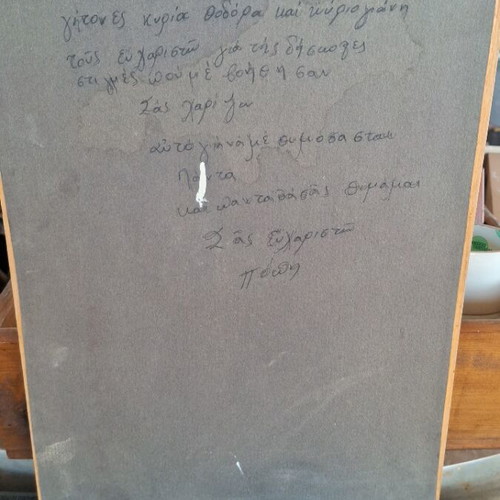 γήτονές κυρία θοδόρα και κύριο γιάνη
τούς εὐχαριστῶ γιά τής δήσκολες
στιγμές πού μέ βοήθησαν
Σάς χαρίζω
αὐτό γιά νά μέ θυμόσασται
Πάντα
και πάντα θά σᾶς θυμάμαι
Σᾶς Εὐχαριστῶ
Πόπη